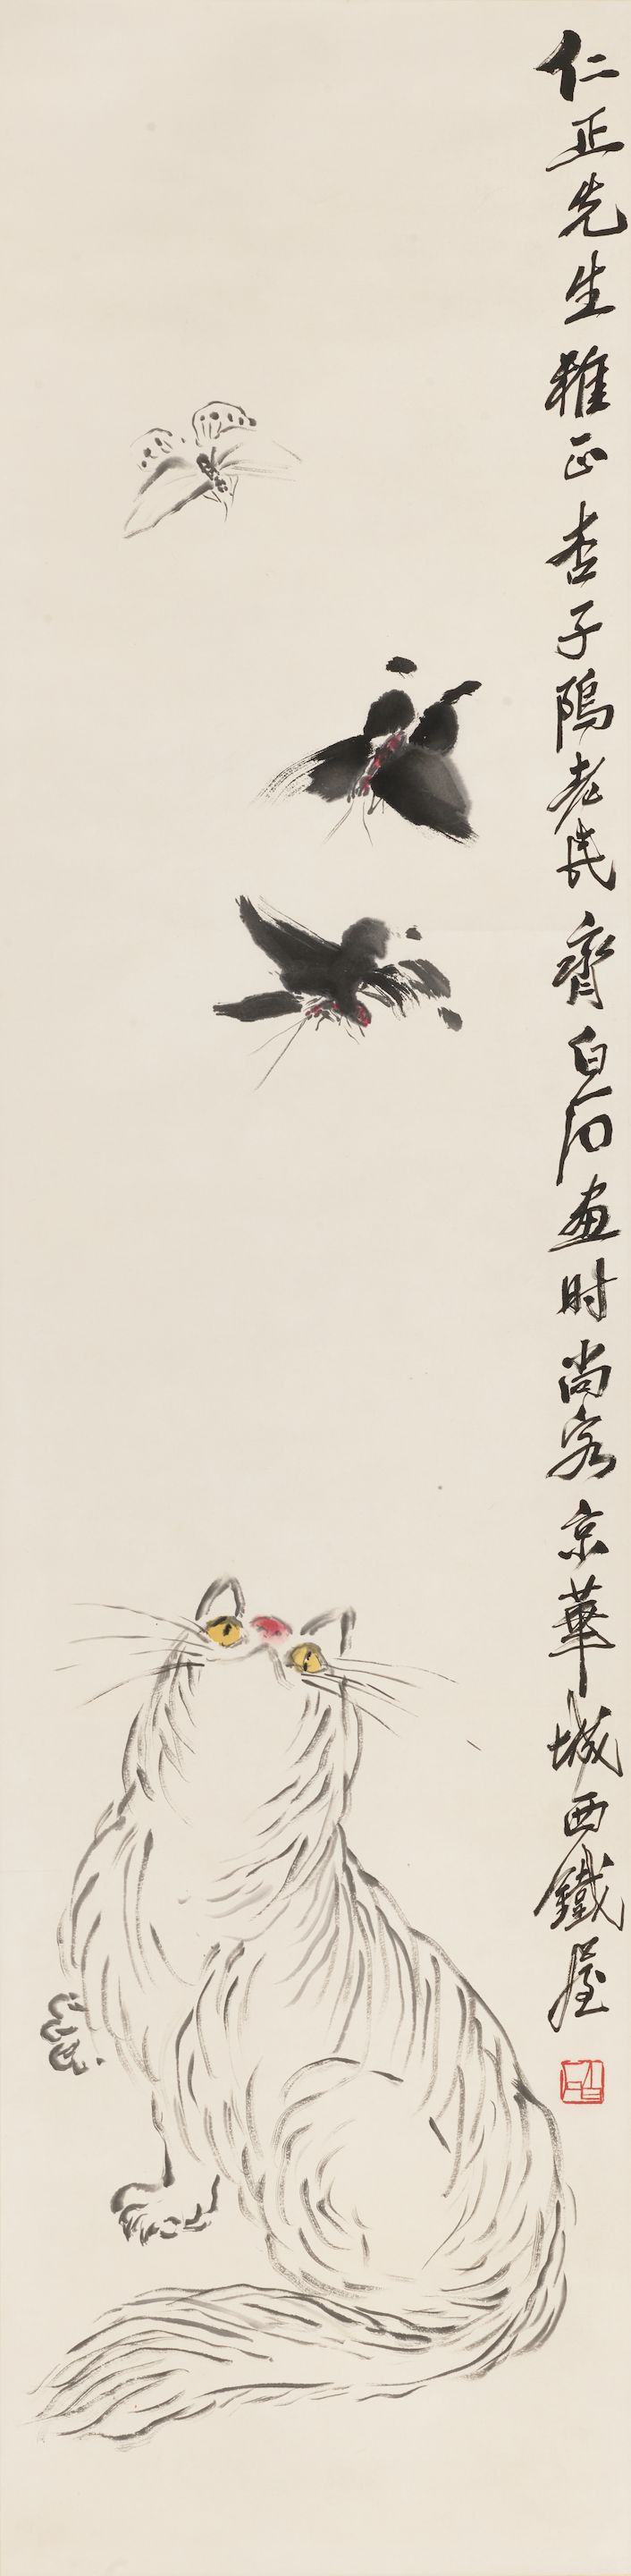 仁正先生雅正杏子隖老民齊白石畫时尚客京華城西鐵屋
白石